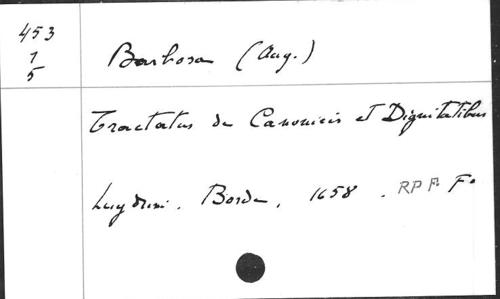 453
1
5
Barbosa (Aug.)
Tractatus de Canonicis et Dignitatibus
Lugduni. Borde, 1658. RPF Fo